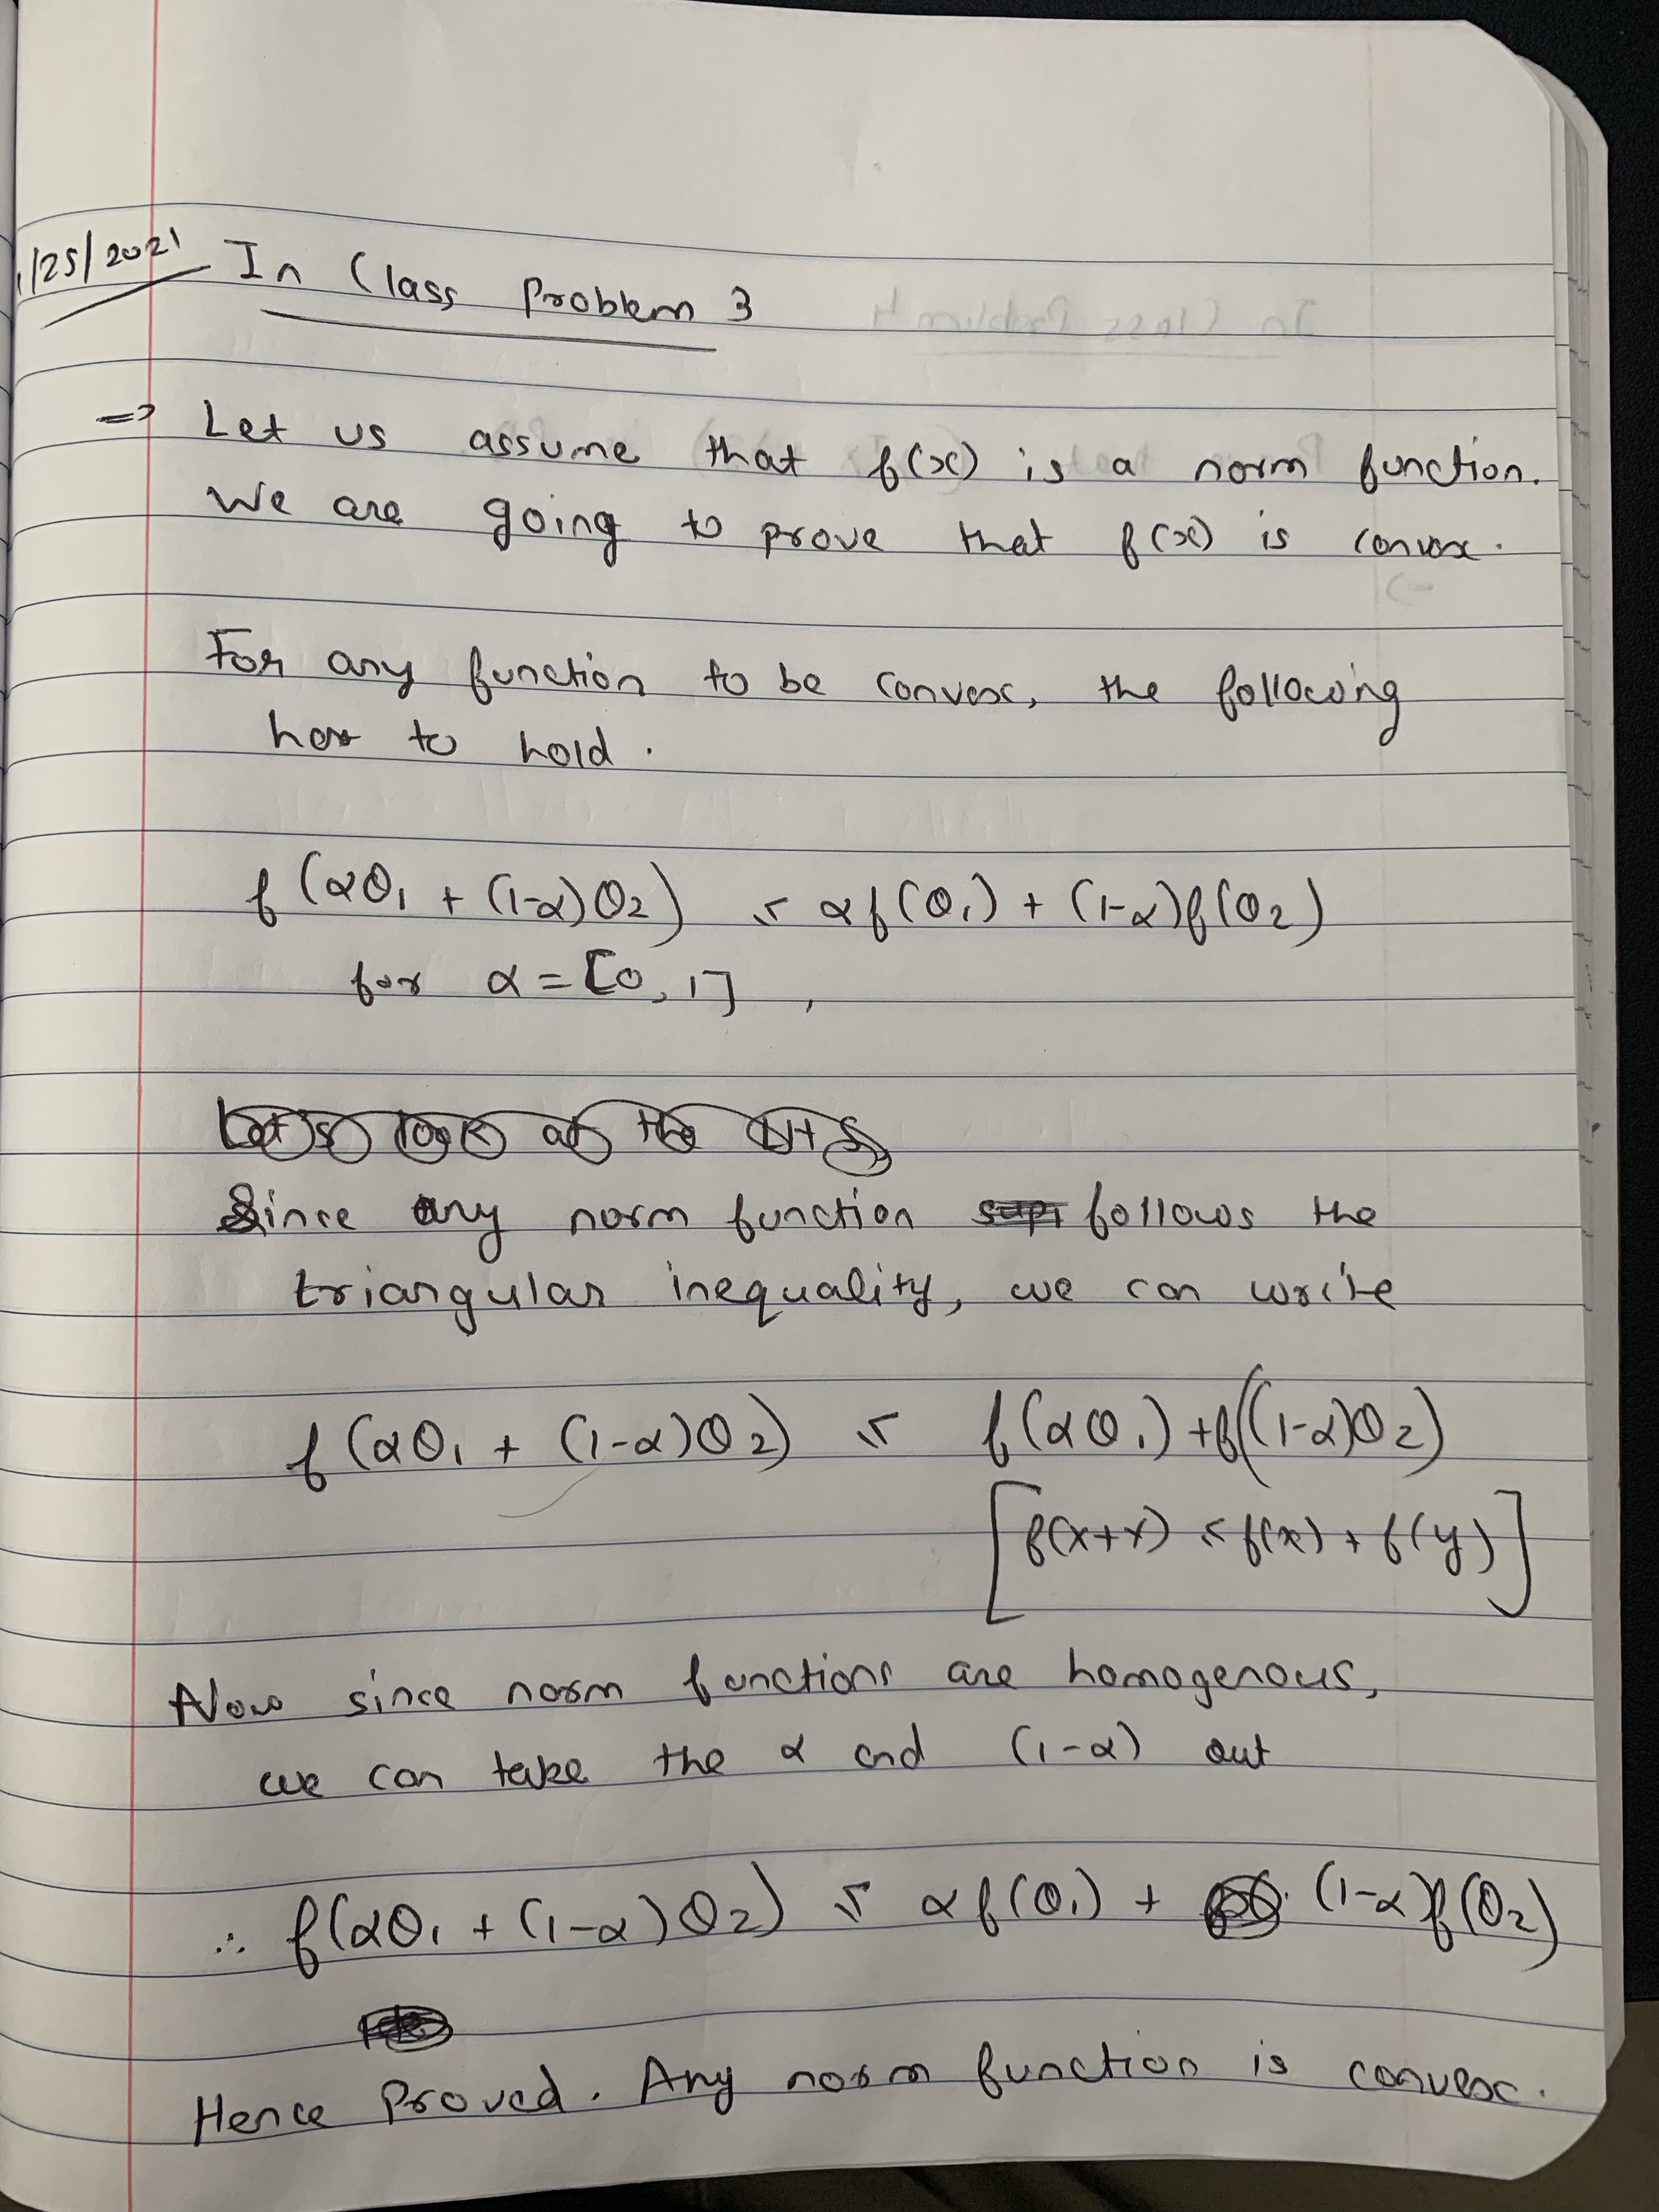 1/25/2021 In Class Problem 3
=> Let us assume that f(x) is a norm function.
We are going to prove that f(x) is convex.
For any function to be convex, the following
has to hold.
f(αθ₁ + (1-α)θ₂) ≤ αf(θ₁) + (1-α)f(θ₂)
for α = [0, 1],
Let's look at the LHS
Since any norm function follows the
triangular inequality, we can write
f(αθ₁ + (1-α)θ₂) ≤ f(αθ₁) + f((1-α)θ₂)
[f(x+y) ≤ f(x) + f(y)]
Now since norm functions are homogenous,
we can take the α and (1-α) out
∴ f(αθ₁ + (1-α)θ₂) ≤ αf(θ₁) + (1-α)f(θ₂)
Hence Proved. Any norm function is convex.